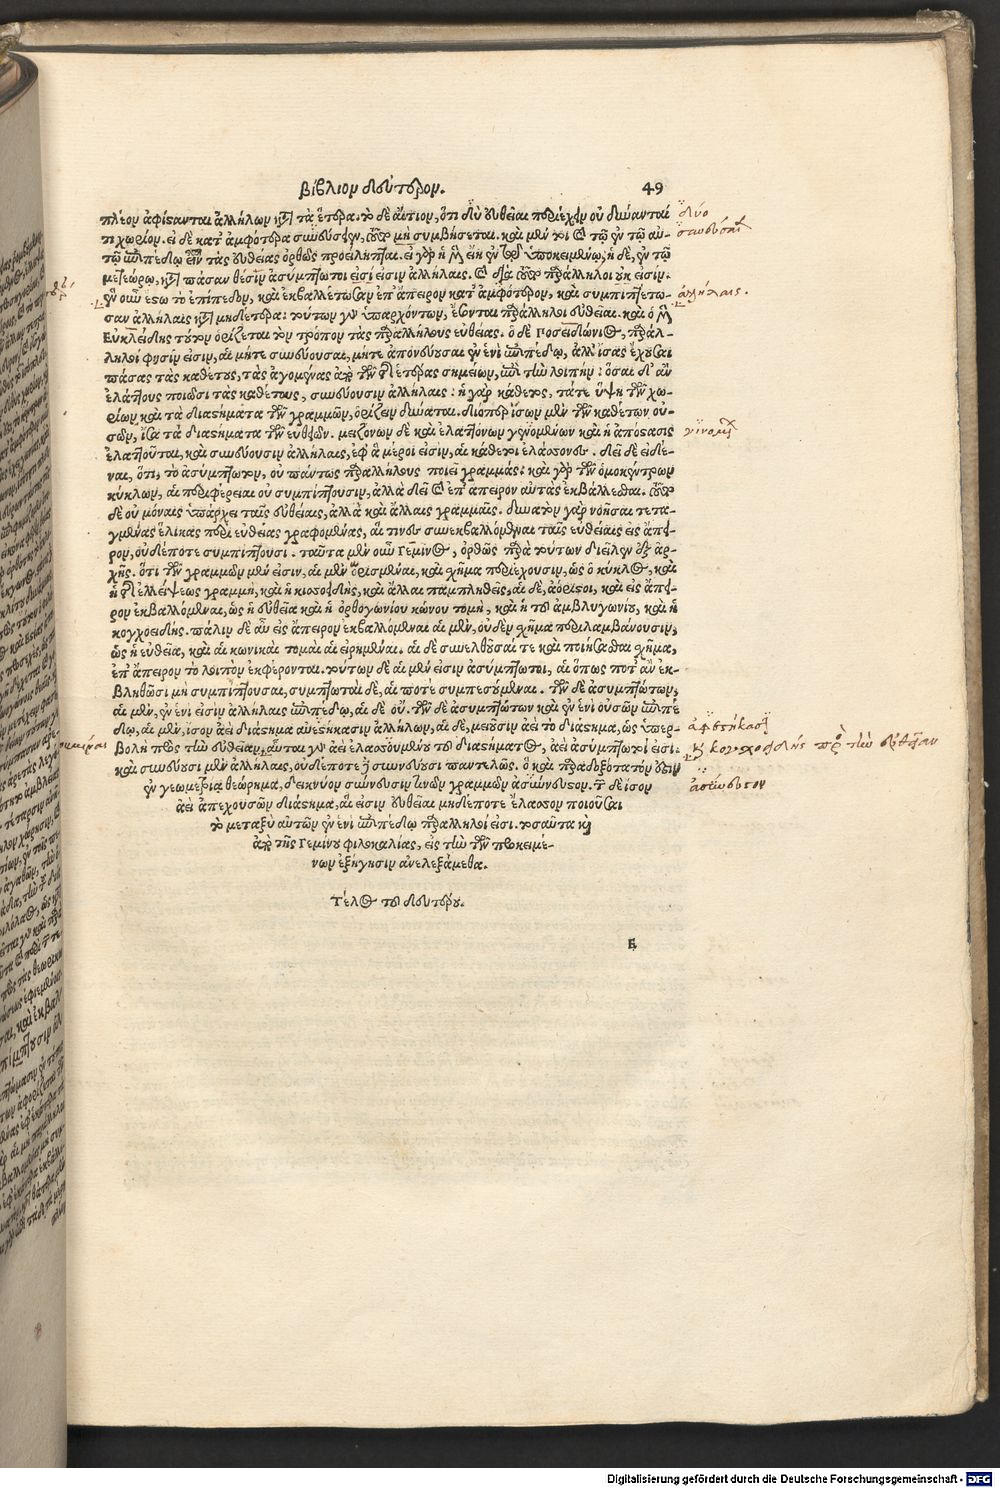 βιβλίον δεύτερον. 49
πλέον ἀφίστανται ἀλλήλων κατὰ τὰ ἕτερα. τὸ δὲ αἴτιον, ὅτι δύο εὐθεῖαι περιέχειν οὐ δύνανται
τι χωρίον. εἰ δὲ κατ' ἀμφότερα συνεύσειν, τοῦτο μὴ συμβήσεται. καὶ μὲν καὶ τῷ ἐν τῷ αὐ-
τῷ ἐπιπέδῳ εἶναι τὰς εὐθείας ὀρθῶς προείληπται. εἰ γὰρ ἡ μὲν εἴη ἐν τῷ ὑποκειμένῳ, ἡ δὲ, ἐν τῷ
μετεώρῳ, κατὰ πᾶσαν θέσιν ἀσύμπτωτοι εἰσὶ εἰσιν ἀλλήλαις. καὶ διὰ τοῦτο παράλληλοι οὐκ εἰσιν.
ἓν οὖν ἔστω τὸ ἐπίπεδον, καὶ ἐκβαλλέτωσαν ἐπ' ἄπειρον κατ' ἀμφότερον, καὶ συμπιπτέτω-
σαν ἀλλήλαις κατὰ μηδέτερα: τούτων γὰρ ὑπαρχόντων, ἔσονται παράλληλοι εὐθεῖαι. καὶ ὁ μὲν
Εὐκλείδης τοῦτον ὁρίζεται τὸν τρόπον τὰς παραλλήλους εὐθείας. ὁ δὲ Ποσειδώνιος, παράλ-
ληλοι φησίν εἰσιν, αἱ μήτε συνεύουσαι, μήτε ἀπονεύουσαι ἐν ἑνὶ ἐπιπέδῳ, ἀλλ' ἴσας ἔχουσαι
πάσας τὰς καθέτους, τὰς ἀγομένας ἀπὸ τῶν τῆς ἑτέρας σημείων, ἐπὶ τὴν λοιπήν: ὅσαι δ' ἂν
ἐλάττους ποιῶσι τὰς καθέτους, συνεύουσιν ἀλλήλαις: ἡ γὰρ κάθετος, τά τε ὕψη τῶν χω-
ρίων καὶ τὰ διαστήματα τῶν γραμμῶν, ὁρίζειν δύναται. διόπερ ἴσων μὲν τῶν καθέτων οὐ-
σῶν, ἴσα τὰ διαστήματα τῶν εὐθειῶν. μειζόνων δὲ καὶ ἐλαττόνων γενομένων καὶ ἡ ἀπόστασις
ἐλαττοῦται, καὶ συνεύουσιν ἀλλήλαις, ἐφ' ἃ μέρη εἰσιν, αἱ κάθετοι ἐλάσσονες. δεῖ δὲ εἰδέ-
ναι, ὅτι, τὸ ἀσύμπτωτον, οὐ πάντως παραλλήλους ποιεῖ γραμμάς: καὶ γὰρ τῶν ὁμοκέντρων
κύκλων, αἱ περιφέρειαι οὐ συμπίπτουσιν, ἀλλὰ δεῖ καὶ ἐπ' ἄπειρον αὐτὰς ἐκβάλλεσθαι. τοῦτο
δὲ οὐ μόναις ὑπάρχει ταῖς εὐθείαις, ἀλλὰ καὶ ἄλλαις γραμμαῖς. δυνατὸν γὰρ νοῆσαι τετα-
γμένας ἕλικας περὶ εὐθείας γραφομένας, αἵ τινες συνεκβαλλόμεναι ταῖς εὐθείαις εἰς ἄπει-
ρον, οὐδέποτε συμπίπτουσι. ταῦτα μὲν οὖν Γεμῖνος, ὀρθῶς παρὰ τούτων διεῖλεν ἐξ ἀρ-
χῆς. ὅτι τῶν γραμμῶν μέν εἰσιν, αἱ μὲν ὡρισμέναι, καὶ σχῆμα περιέχουσιν, ὡς ὁ κύκλος, καὶ
ἡ τῆς ἐλλείψεως γραμμὴ, καὶ ἡ κισσοειδὴς, καὶ ἄλλαι παμπληθεῖς, αἱ δὲ, ἀόριστοι, καὶ εἰς ἄπει-
ρον ἐκβαλλόμεναι, ὡς ἡ εὐθεῖα καὶ ἡ ὀρθογωνίου κώνου τομὴ, καὶ ἡ τοῦ ἀμβλυγωνίου, καὶ ἡ
κογχοειδής. πάλιν δὲ αὖ εἰς ἄπειρον ἐκβαλλόμεναι αἱ μὲν, οὐδὲν σχῆμα περιλαμβάνουσιν,
ὡς ἡ εὐθεῖα, καὶ αἱ κωνικαὶ τομαὶ αἱ εἰρημέναι. αἱ δὲ συνελθοῦσαί τε καὶ ποιήσασαι σχῆμα,
ἐπ' ἄπειρον τὸ λοιπὸν ἐκφέρονται. τούτων δὲ αἱ μέν εἰσιν ἀσύμπτωτοι, αἱ ὅπως ποτ' ἂν ἐκ-
βληθῶσι μὴ συμπίπτουσαι, συμπτωταὶ δὲ, αἱ ποτὲ συμπεσούμεναι. τῶν δὲ ἀσυμπτώτων,
αἱ μὲν, ἐν ἑνί εἰσιν ἀλλήλαις ἐπιπέδῳ, αἱ δὲ οὔ. τῶν δὲ ἀσυμπτώτων καὶ ἐν ἑνὶ οὐσῶν ἐπιπέ
δῳ, αἱ μὲν, ἴσον ἀεὶ διάστημα ἀνεστήκασιν ἀλλήλων, αἱ δὲ, μειοῦσιν ἀεὶ τὸ διάστημα, ὡς ὑπερ-
βολὴ πρὸς τὴν εὐθεῖαν, αὗται γὰρ ἀεὶ ἐλασσουμένου τοῦ διαστήματος, ἀεὶ ἀσύμπτωτοί εἰσι.
καὶ συνεύουσι μὲν ἀλλήλαις, οὐδέποτε δὲ συνεύουσι παντελῶς. ὃ καὶ παραδοξότατόν ἐστιν
ἐν γεωμετρίᾳ θεώρημα, δεικνύον σύννευσιν τινῶν γραμμῶν ἀσύννευστον. τῶν δὲ ἴσον
ἀεὶ ἀπεχουσῶν διάστημα, αἵ εἰσιν εὐθεῖαι μηδέποτε ἔλασσον ποιοῦσαι
τὸ μεταξὺ αὐτῶν ἐν ἑνὶ ἐπιπέδῳ παράλληλοί εἰσι. τοσαῦτα καὶ
ἀπὸ τῆς Γεμίνου φιλοκαλίας, εἰς τὴν τῶν προκειμέ-
νων ἐξήγησιν ἀνελεξάμεθα.
Τέλος τοῦ δευτέρου.
E
δύο
ἀλλήλαις.
ἀφεστήκασι
καὶ κογχοειδὴς πρὸς τὴν εὐθεῖαν
ἀσύνευστον
Digitalisierung gefördert durch die Deutsche Forschungsgemeinschaft - DFG